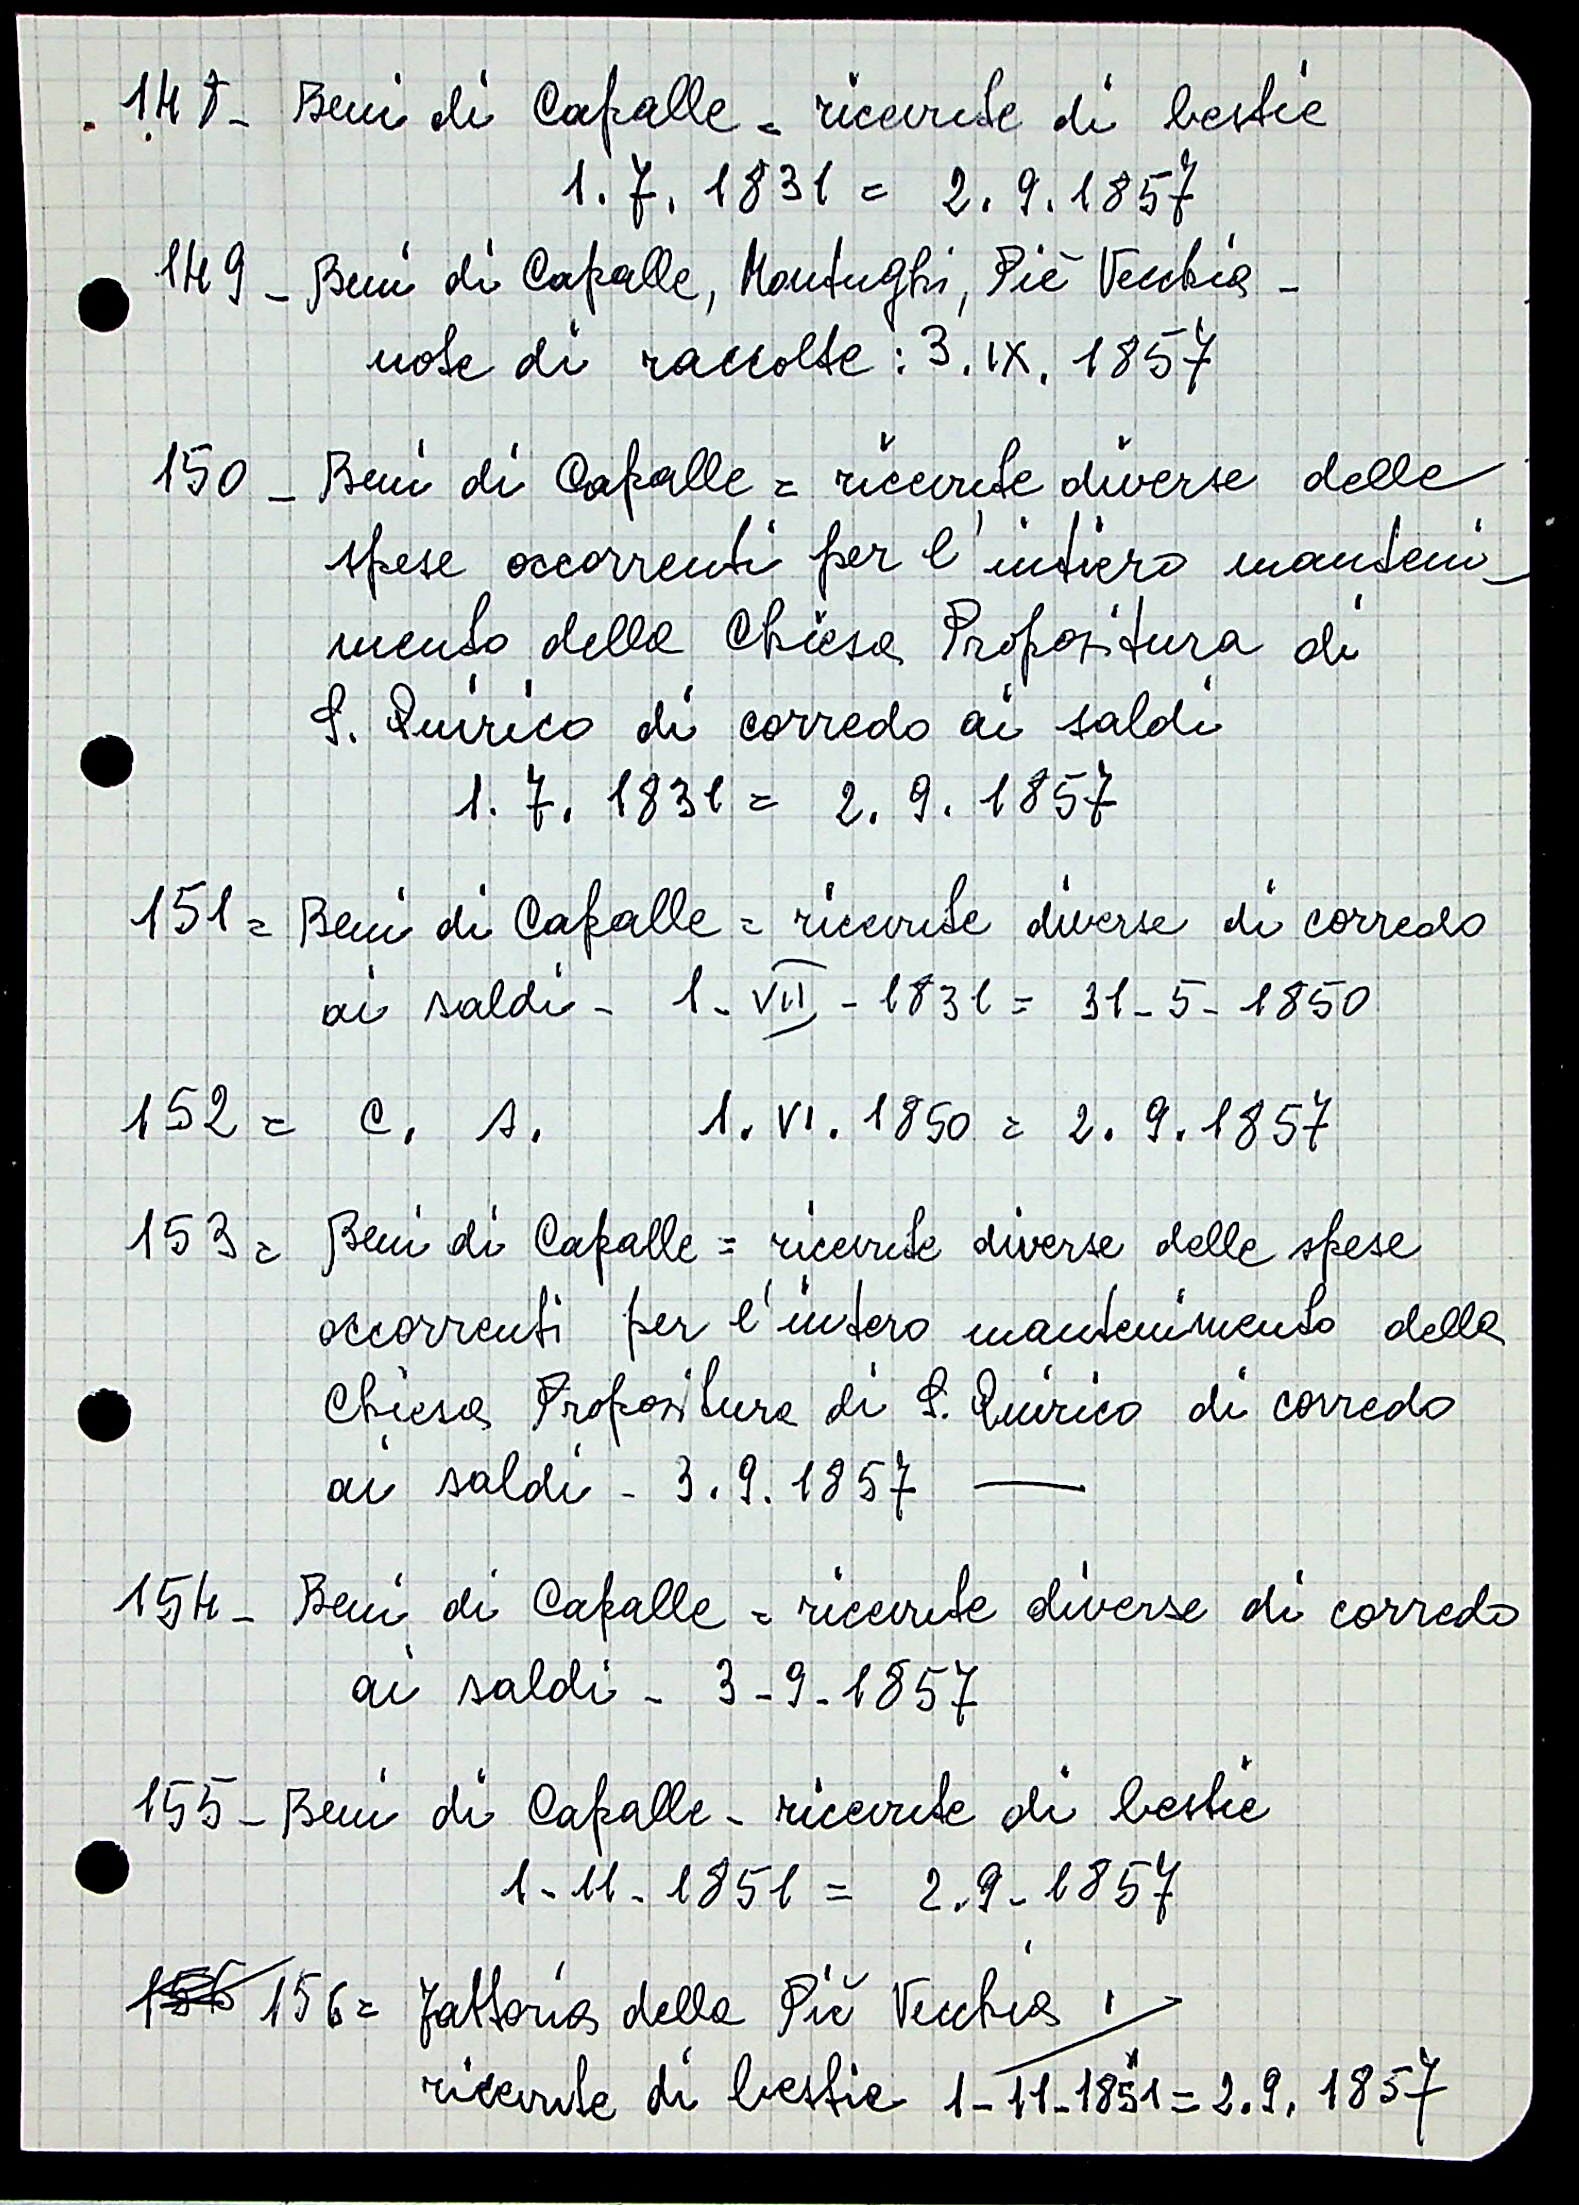 148- Beni di Capalle = ricevute di bestie
1.7.1831 = 2.9.1857
149 - Beni di Capalle, Montughi, Piè Vecchia -
note di raccolte : 3.IX.1857
150 - Beni di Capalle = ricevute diverse delle
spese occorrenti per l'intiero manteni_
mento della Chiesa Propositura di
S. Quirico di corredo ai saldi
1.7.1831 = 2.9.1857
151 = Beni di Capalle = ricevute diverse di corredo
ai saldi - 1-VII-1831 = 31-5-1850
152 = C. s. 1.VI.1850 = 2.9.1857
153 = Beni di Capalle = ricevute diverse delle spese
occorrenti per l'intero mantenimento della
Chiesa Propositura di S. Quirico di corredo
ai saldi - 3.9.1857 —
154 - Beni di Capalle = ricevute diverse di corredo
ai saldi - 3-9-1857
155 - Beni di Capalle - ricevute di bestie
1-11-1851 = 2.9-1857
156 = Fattoria della Piè Vecchia
ricevute di bestie 1-11-1851 = 2.9.1857